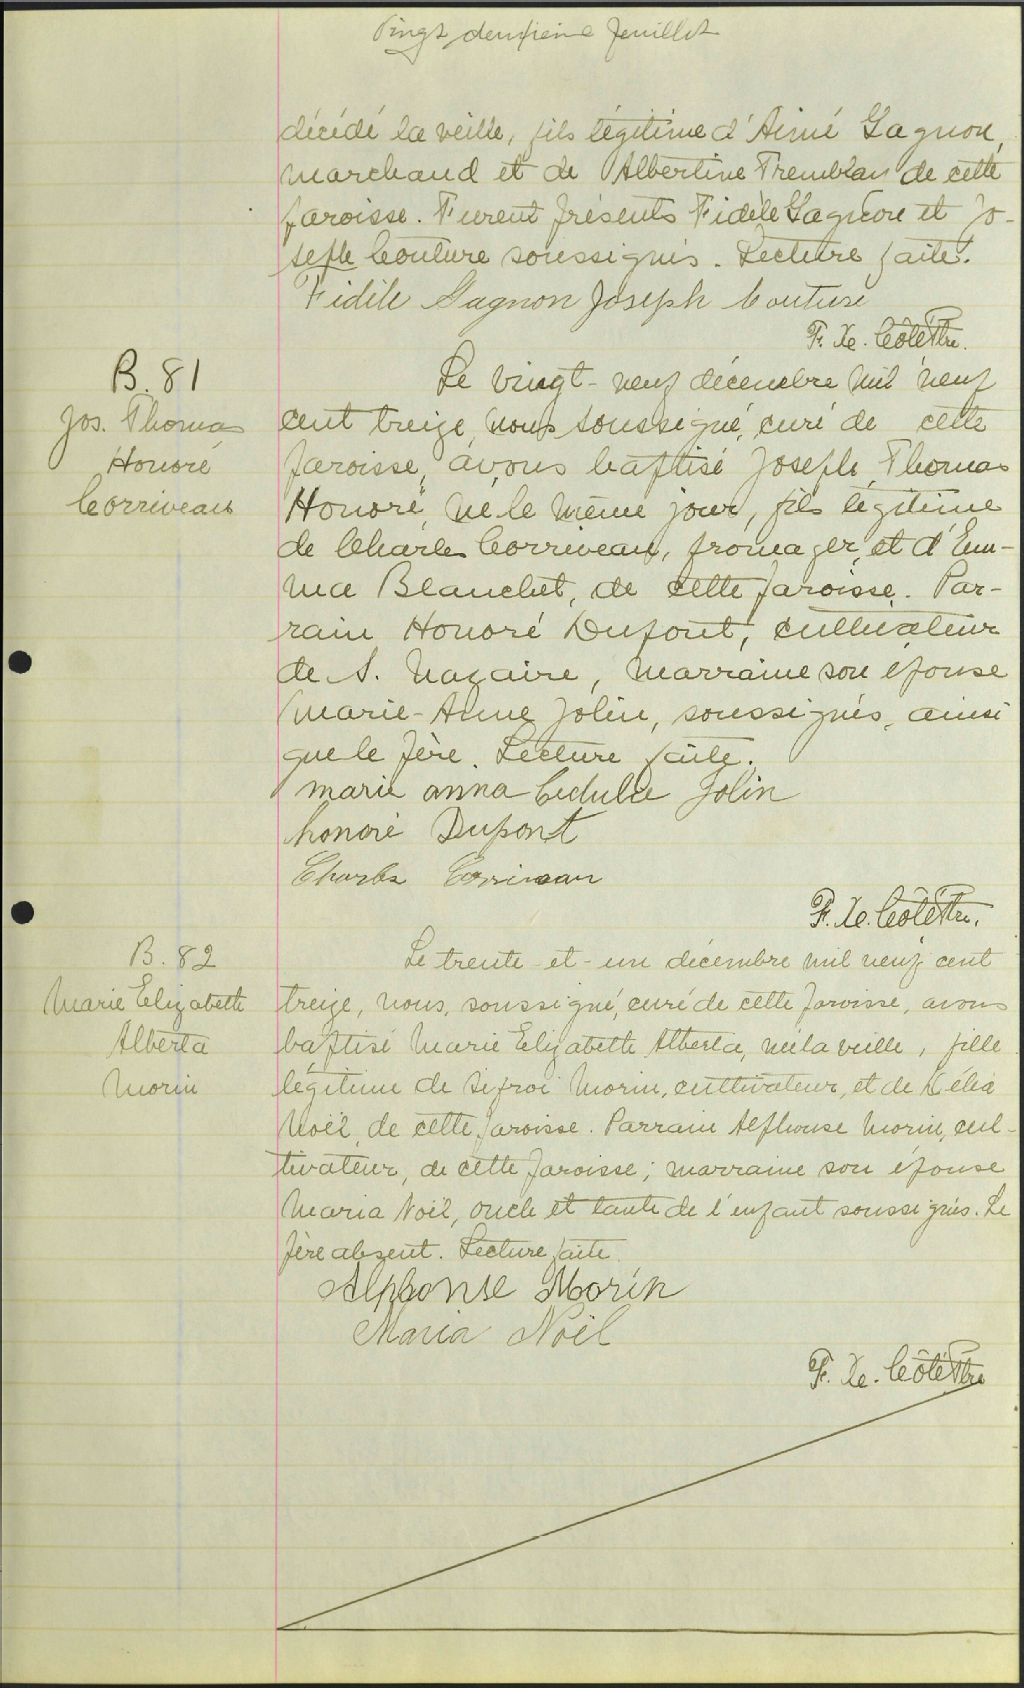 Vingt deuxième feuillet
décédé la veille, fils légitime d'Aimé Gagnon,
marchand et de Albertine Tremblay de cette
paroisse. Furent présents Fidèle Gagnon et Jo-
seph Couture soussignés. Lecture faite.
Fidèle Gagnon Joseph Couture
F. X. Côté Ptre.
B. 81
Jos. Thomas
Honoré
Corriveau
Le vingt-neuf décembre mil neuf
cent treize, nous soussigné, curé de cette
paroisse, avons baptisé Joseph, Thomas
Honoré, né le même jour, fils légitime
de Charles Corriveau, fromager, et d'Em-
ma Blanchet, de cette paroisse. Par-
rain Honoré Dupont, cultivateur
de S. Nazaire, marraine son épouse
Marie-Anne Jolin, soussignés, ainsi
que le père. Lecture faite.
marie anna Jolin
honoré Dupont
Charles Corriveau
F. X. Côté Ptre.
B. 82
Marie Elizabette
Alberta
Morin
Le trente-et-un décembre mil neuf cent
treize, nous, soussigné, curé de cette paroisse, avons
baptisé Marie Elizabette Alberta, née la veille, fille
légitime de Sifroi Morin, cultivateur, et de Délia
Noël, de cette paroisse. Parrain Alphonse Morin, cul-
tivateur, de cette paroisse; marraine son épouse
Maria Noël, oncle et tante de l'enfant soussignés. Le
père absent. Lecture faite.
Alphonse Morin
Maria Noël
F. X. Côté Ptre